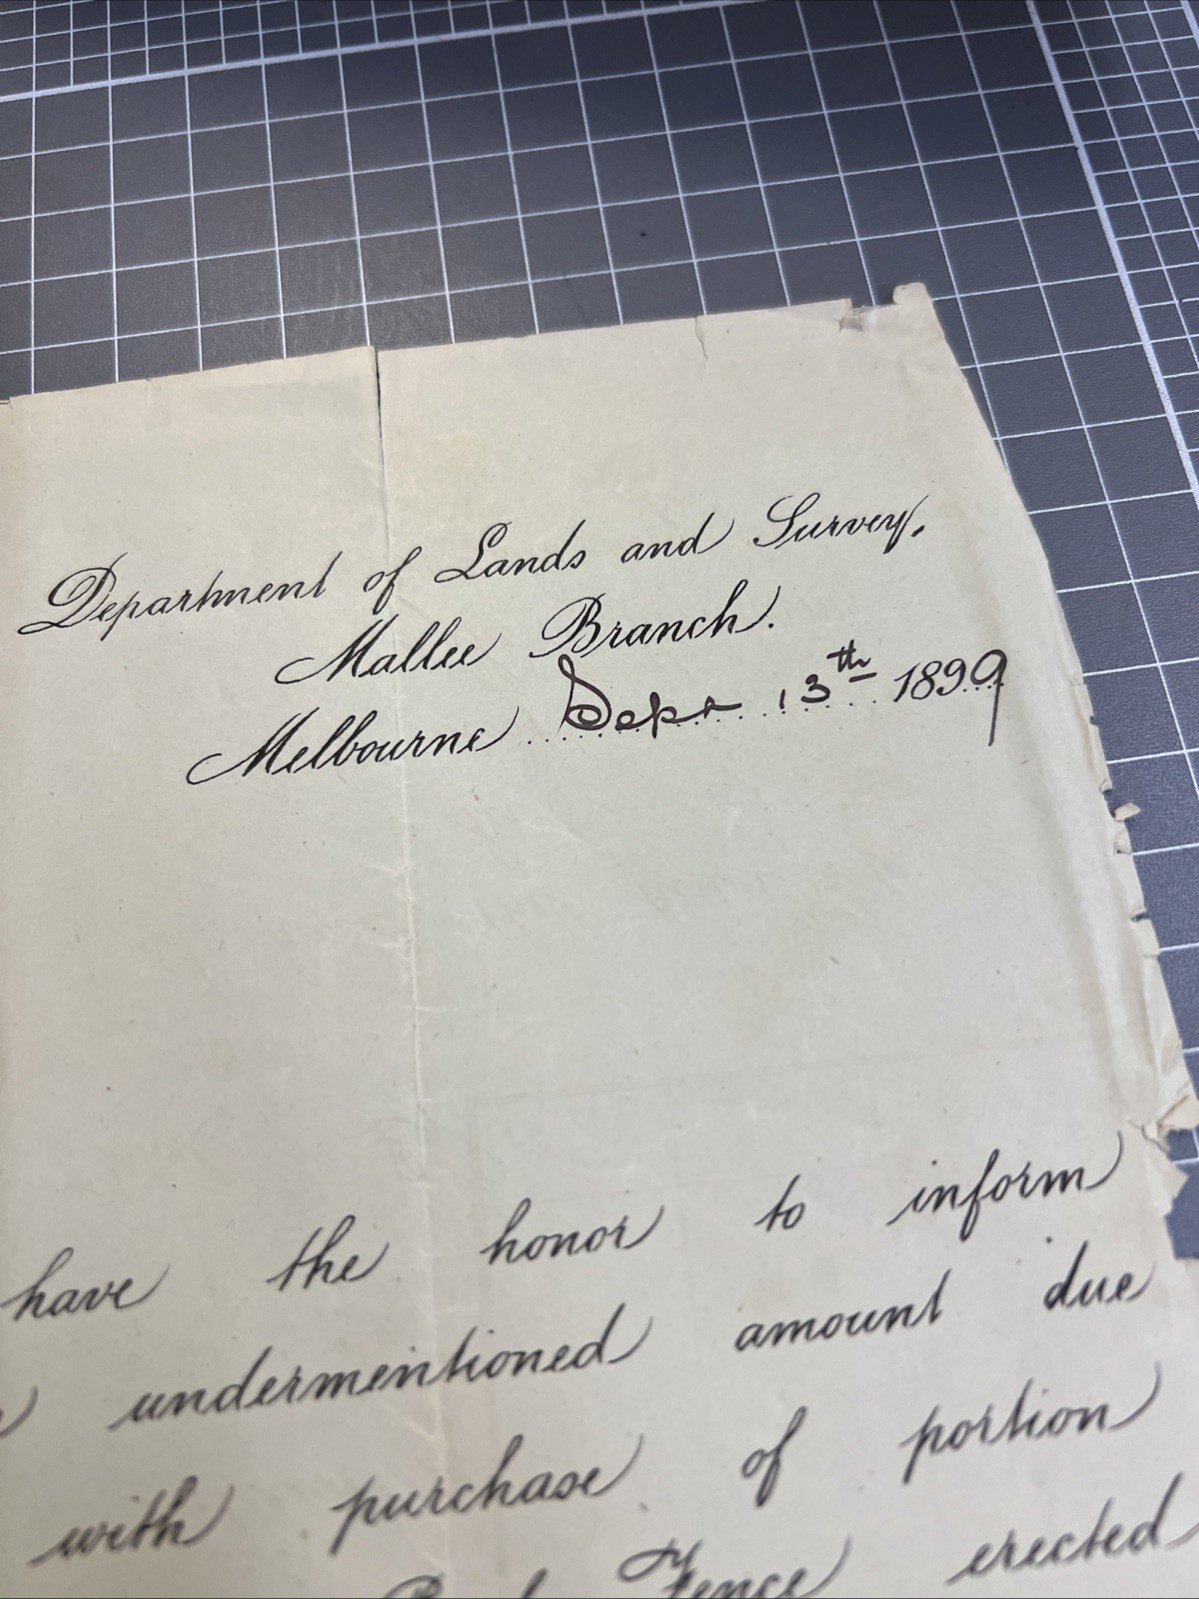 Department of Lands and Survey,
Mallee Branch.
Melbourne Sept 13th 1899
have the honor to inform
undermentioned amount due
with purchase of portion
Fence erected